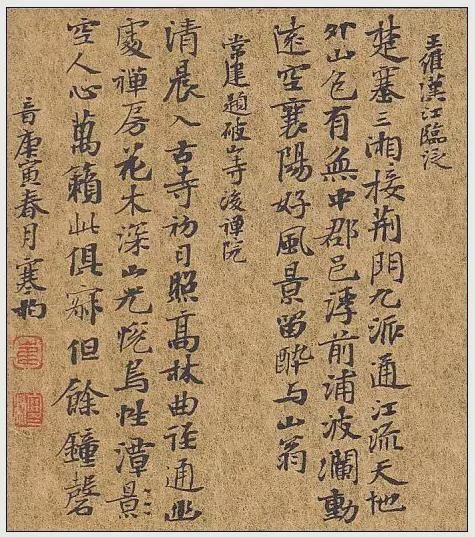 王維漢江臨泛
楚塞三湘接荆門九派通江流天地
外山色有無中郡邑浮前浦波瀾動
遠空襄陽好風景留醉与山翁
常建題破山寺後禅院
清晨入古寺初日照高林曲徑通幽
處禅房花木深山光悦鳥性潭景
空人心萬籟此俱寂但餘鐘磬
音庚寅春月寒